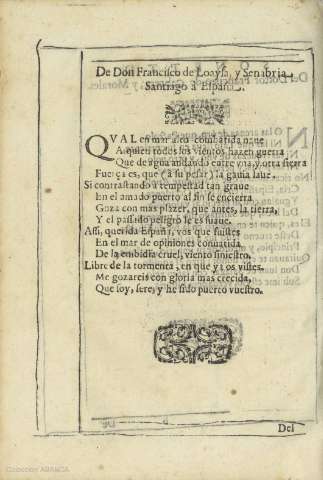 De Don Francisco de Loaysa, y Senabria
Santiago à España.
QVAL en mar alto combatida naue
A quien todos los vientos hazen guerra
Que de agua andando entre vna, y otra sierra
Fuerça es, que (à su pesar) la gauia laue.
Si contrastando à tempestad tan graue
En el amado puerto al fin se encierra
Goza con mas plazer, que antes, la tierra,
Y el passado peligro le es suaue.
Assi, querida España, vos que fuistes
En el mar de opiniones combatida
De la embidia cruel, viento siniestro,
Libre de la tormenta, en que ya os vistes,
Me gozareis con gloria mas crecida,
Que soy, serè, y he sido puerto vuestro.
Del
Colección ABANCA